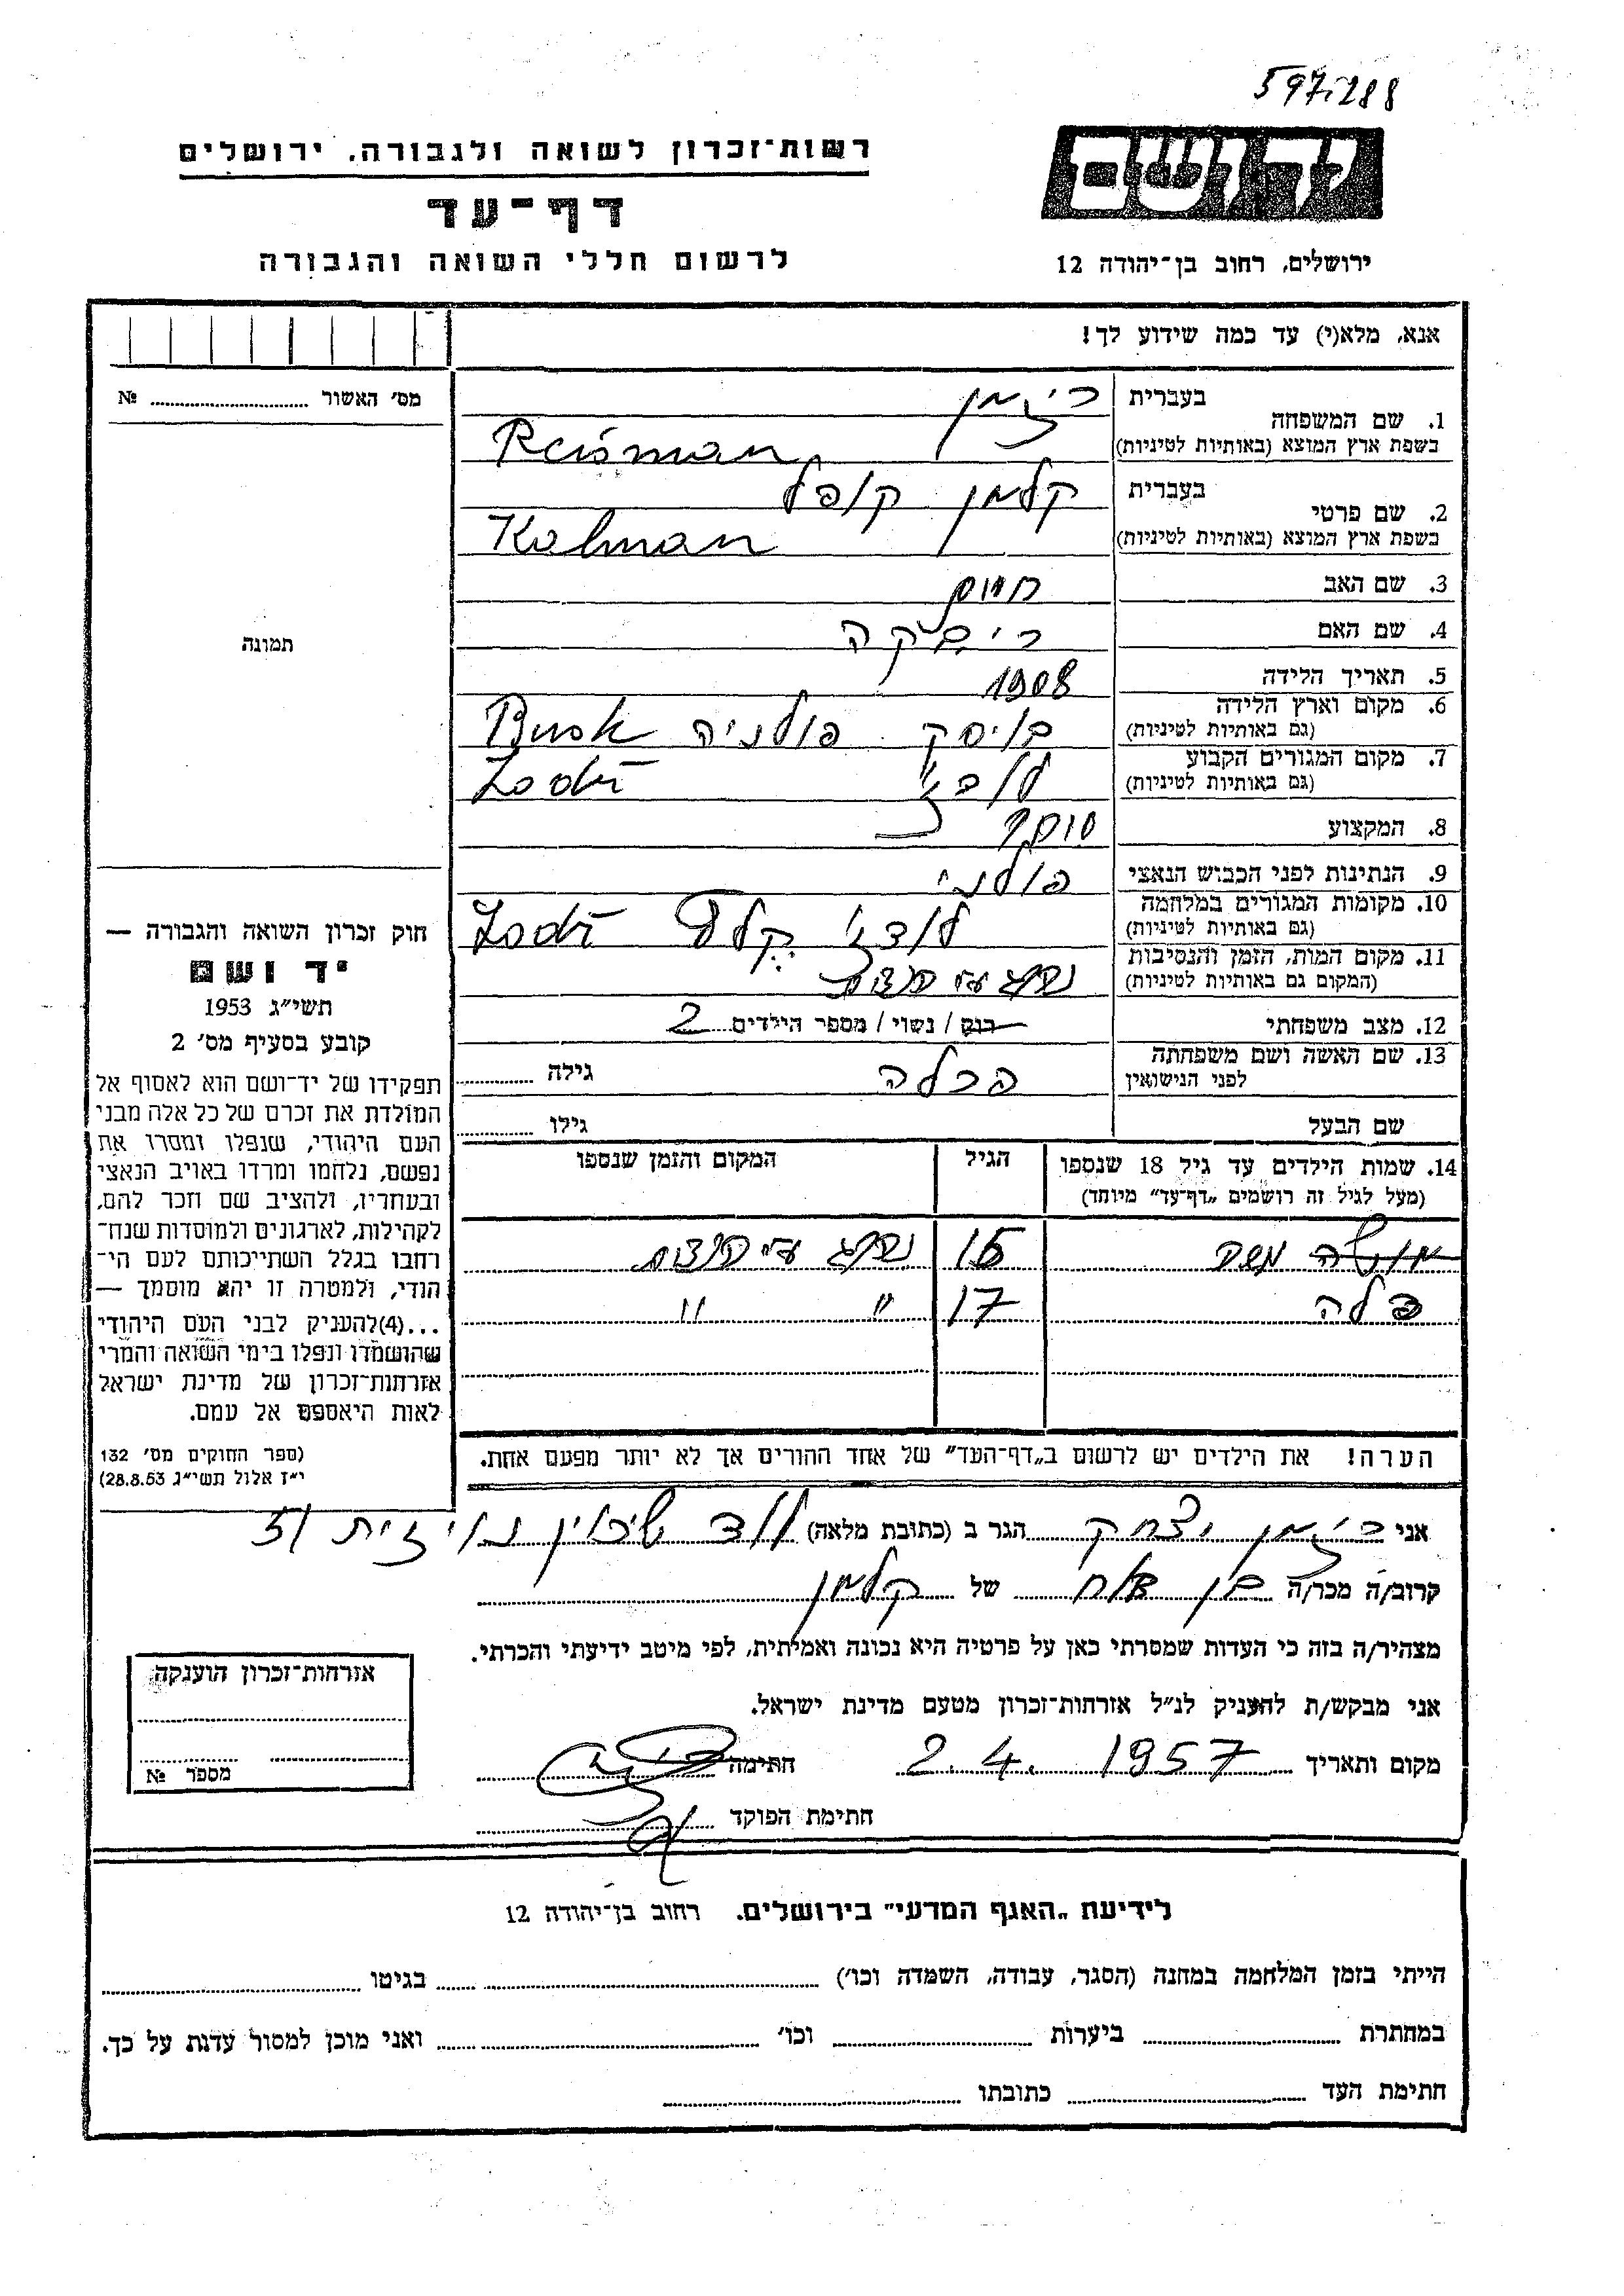 597,288
רשות־זכרון לשואה ולגבורה, ירושלים
יד ושם
דף־עד
לרשום חללי השואה והגבורה
ירושלים, רחוב בן־יהודה 12
אנא, מלא(י) עד כמה שידוע לך!
מס' האשור № ....................
תמונה
1. שם המשפחה בעברית
ריזמן
בשפת ארץ המוצא (באותיות לטיניות)
Reisman
2. שם פרטי בעברית
קלמן קופל
בשפת ארץ המוצא (באותיות לטיניות)
Kalman
3. שם האב חיים
4. שם האם ריבקה
5. תאריך הלידה 1908
6. מקום וארץ הלידה (גם באותיות לטיניות) בויסק פולניה Busk
7. מקום המגורים הקבוע (גם באותיות לטיניות) Lodź
8. המקצוע סוחר
9. הנתינות לפני הכבוש הנאצי פולני
10. מקומות המגורים במלחמה (גם באותיות לטיניות) לודז' Lodź
11. מקום המות, הזמן והנסיבות (המקום גם באותיות לטיניות) נהרג על הנאצים
12. מצב משפחתי רווק / נשוי / מספר הילדים 2
13. שם האשה ושם משפחתה לפני הנישואין פרלה גילה
שם הבעל גילו
14. שמות הילדים עד גיל 18 שנספו (מעל לגיל זה רושמים „דף־עד” מיוחד) הגיל המקום והזמן שנספו
משה 15
פלה 17 " "
הערה! את הילדים יש לרשום ב„דף־העד” של אחד ההורים אך לא יותר מפעם אחת.
חוק זכרון השואה והגבורה —
יד ושם
תשי״ג 1953
קובע בסעיף מס' 2
תפקידו של יד־ושם הוא לאסוף אל
המולדת את זכרם של כל אלה מבני
העם היהודי, שנפלו ומסרו את
נפשם, נלחמו ומרדו באויב הנאצי
ובעוזריו, ולהציב שם וזכר להם,
לקהילות, לארגונים ולמוסדות שנח־
רחבו בגלל השתייכותם לעם הי־
הודי, ולמטרה זו יהא מוסמך —
...(4) להעניק לבני העם היהודי
שהושמדו ונפלו בימי השואה והמרי
אזרחות־זכרון של מדינת ישראל
לאות היאספם אל עמם.
(ספר החוקים מס' 132
י״ז אלול תשי״ג 28.8.53)
אני ריזמן יצחק הגר ב (כתובת מלאה) לוד שיכון
קרוב/ה מכר/ה בן אח של קלמן
מצהיר/ה בזה כי העדות שמסרתי כאן על פרטיה היא נכונה ואמיתית, לפי מיטב ידיעתי והכרתי.
אני מבקש/ת להעניק לנ״ל אזרחות־זכרון מטעם מדינת ישראל.
מקום ותאריך 2.4.1957 חתימה
חתימת הפוקד
אזרחות־זכרון הוענקה
מספר №
לידיעת „האגף המדעי” בירושלים. רחוב בן־יהודה 12
הייתי בזמן המלחמה במחנה (הסגר, עבודה, השמדה וכו') .................... בגיטו ....................
במחתרת .................... ביערות .................... וכו' .................... ואני מוכן למסור עדות על כך.
חתימת העד .................... כתובתו ....................